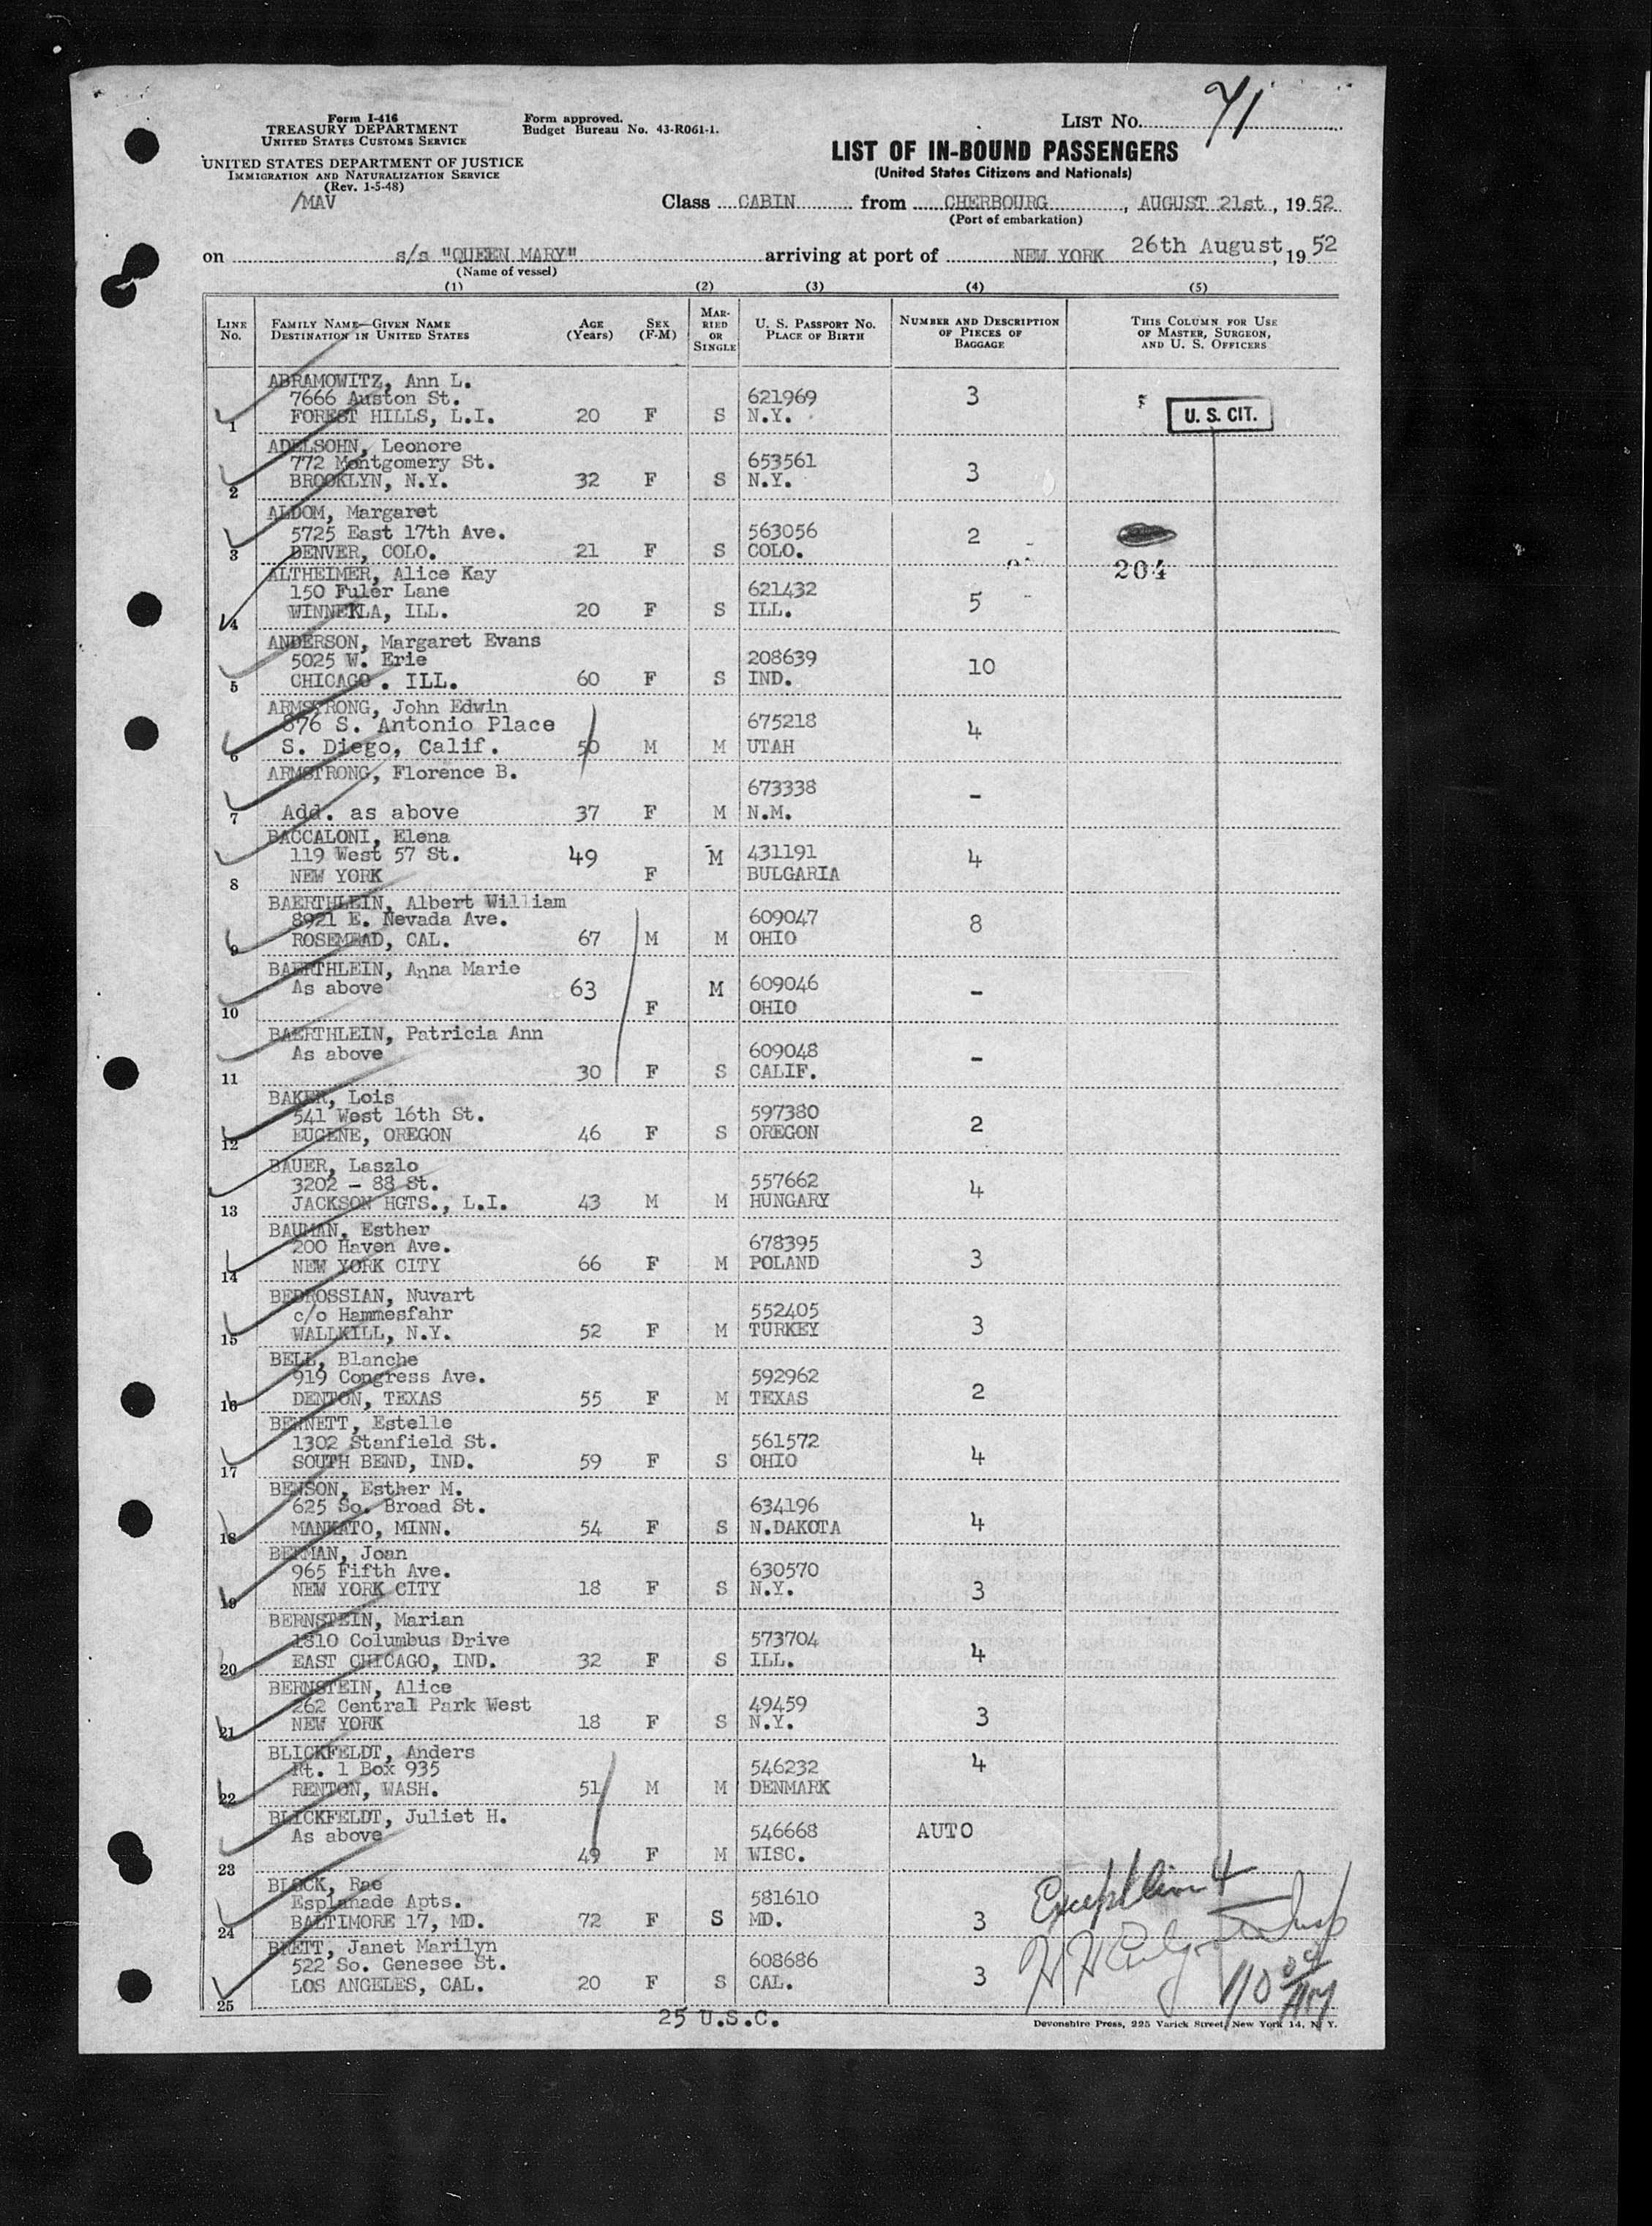 LIST NO. 71
Form I-416
TREASURY DEPARTMENT
UNITED STATES CUSTOMS SERVICE
Form approved.
Budget Bureau No. 43-R061-1.
UNITED STATES DEPARTMENT OF JUSTICE
IMMIGRATION AND NATURALIZATION SERVICE
(Rev. 1-5-48)
/MAV
LIST OF IN-BOUND PASSENGERS
(United States Citizens and Nationals)
Class CABIN from CHERBOURG, AUGUST 21st, 1952
(Port of embarkation)
on s/s "QUEEN MARY" arriving at port of NEW YORK 26th August, 1952
(Name of vessel)
(1) (2) (3) (4) (5)
LINE NO. FAMILY NAME—GIVEN NAME DESTINATION IN UNITED STATES AGE (Years) SEX (F-M) MARRIED OR SINGLE U. S. PASSPORT NO. PLACE OF BIRTH NUMBER AND DESCRIPTION OF PIECES OF BAGGAGE THIS COLUMN FOR USE OF MASTER, SURGEON, AND U. S. OFFICERS
ABRAMOWITZ, Ann L.
7666 Auston St. 621969 3
1 FOREST HILLS, L.I. 20 F S N.Y. U. S. CIT.
ADELSOHN, Leonore
772 Montgomery St. 653561 3
2 BROOKLYN, N.Y. 32 F S N.Y.
ALDOM, Margaret
5725 East 17th Ave. 563056 2
3 DENVER, COLO. 21 F S COLO.
204
ALTHEIMER, Alice Kay
150 Fuler Lane 621432 5
4 WINNEKLA, ILL. 20 F S ILL.
ANDERSON, Margaret Evans
5025 W. Erie 208639 10
5 CHICAGO. ILL. 60 F S IND.
ARMSTRONG, John Edwin
876 S. Antonio Place 675218 4
6 S. Diego, Calif. 50 M M UTAH
ARMSTRONG, Florence B.
673338 -
7 Add. as above 37 F M N.M.
BACCALONI, Elena
119 West 57 St. 49 M 431191 4
8 NEW YORK F BULGARIA
BAERTHLEIN, Albert William
8921 E. Nevada Ave. 609047 8
9 ROSEMEAD, CAL. 67 M M OHIO
BAERTHLEIN, Anna Marie
As above 63 M 609046 -
10 F OHIO
BAERTHLEIN, Patricia Ann
As above 609048 -
11 30 F S CALIF.
BAKER, Lois
541 West 16th St. 597380 2
12 EUGENE, OREGON 46 F S OREGON
BAUER, Laszlo
3202 - 88 St. 557662 4
13 JACKSON HGTS., L.I. 43 M M HUNGARY
BAUMAN, Esther
200 Haven Ave. 678395 3
14 NEW YORK CITY 66 F M POLAND
BEDROSSIAN, Nuvart
c/o Hammesfahr 552405 3
15 WALLKILL, N.Y. 52 F M TURKEY
BELL, Blanche
919 Congress Ave. 592962 2
16 DENTON, TEXAS 55 F M TEXAS
BENNETT, Estelle
1302 Stanfield St. 561572 4
17 SOUTH BEND, IND. 59 F S OHIO
BENSON, Esther M.
625 So. Broad St. 634196 4
18 MANKATO, MINN. 54 F S N.DAKOTA
BERMAN, Joan
965 Fifth Ave. 630570 3
19 NEW YORK CITY 18 F S N.Y.
BERNSTEIN, Marian
1310 Columbus Drive 573704 4
20 EAST CHICAGO, IND. 32 F S ILL.
BERNSTEIN, Alice
262 Central Park West 49459 3
21 NEW YORK 18 F S N.Y.
BLICKFELDT, Anders
Rt. 1 Box 935 546232 4
22 RENTON, WASH. 51 M M DENMARK
BLICKFELDT, Juliet H.
As above 546668 AUTO
23 49 F M WISC.
BLOCK, Rae
Esplanade Apts. 581610 3
24 BALTIMORE 17, MD. 72 F S MD.
Exception 4
BRETT, Janet Marilyn
522 So. Genesee St. 608686 3
25 LOS ANGELES, CAL. 20 F S CAL.
AM
25 U.S.C.
Devonshire Press, 225 Varick Street, New York 14, N. Y.